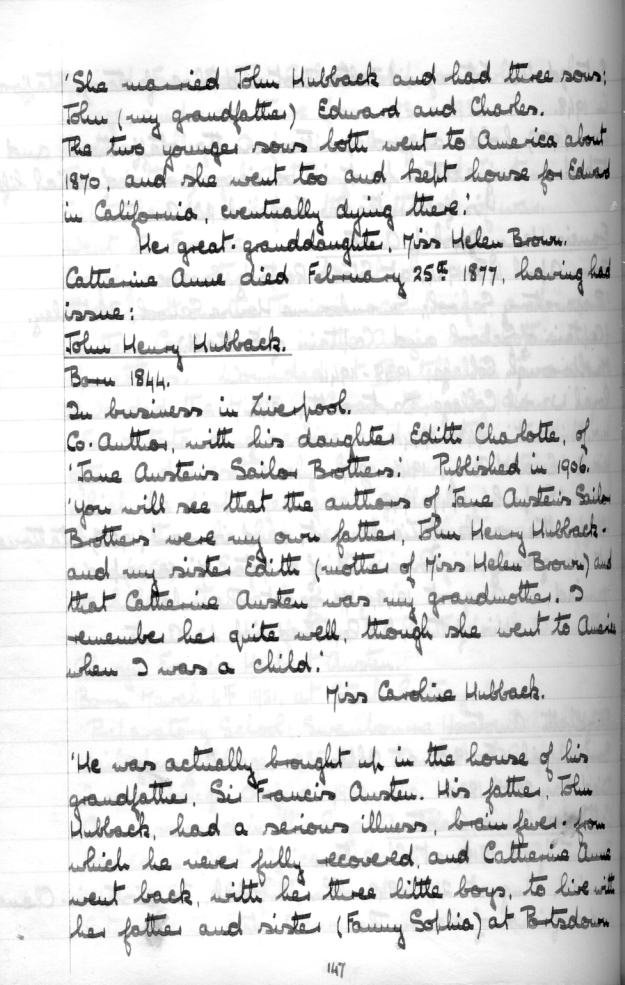 'She married John Hubback and had three sons;
John (my grandfather) Edward and Charles.
The two younger sons both went to America about
1870, and she went too and kept house for Edward
in California, eventually dying there.'
Her great-granddaughter, Miss Helen Brown.
Catherine Anne died February 25th 1877, having had
issue:
John Henry Hubback.
Born 1844.
In business in Liverpool.
Co-Author, with his daughter Edith Charlotte, of
'Jane Austen's Sailor Brothers.' Published in 1906.
'You will see that the authors of 'Jane Austen's Sailor
Brothers' were my own father, John Henry Hubback-
and my sister Edith (mother of Miss Helen Brown) and
that Catherine Austen was my grandmother. I
remember her quite well, though she went to America
when I was a child.'
Miss Caroline Hubback.
'He was actually brought up in the house of his
grandfather, Sir Francis Austen. His father, John
Hubback, had a serious illness, brain fever-from
which he never fully recovered, and Catherine Anne
went back, with her three little boys, to live with
her father and sister (Fanny Sophia) at Portsdown
147